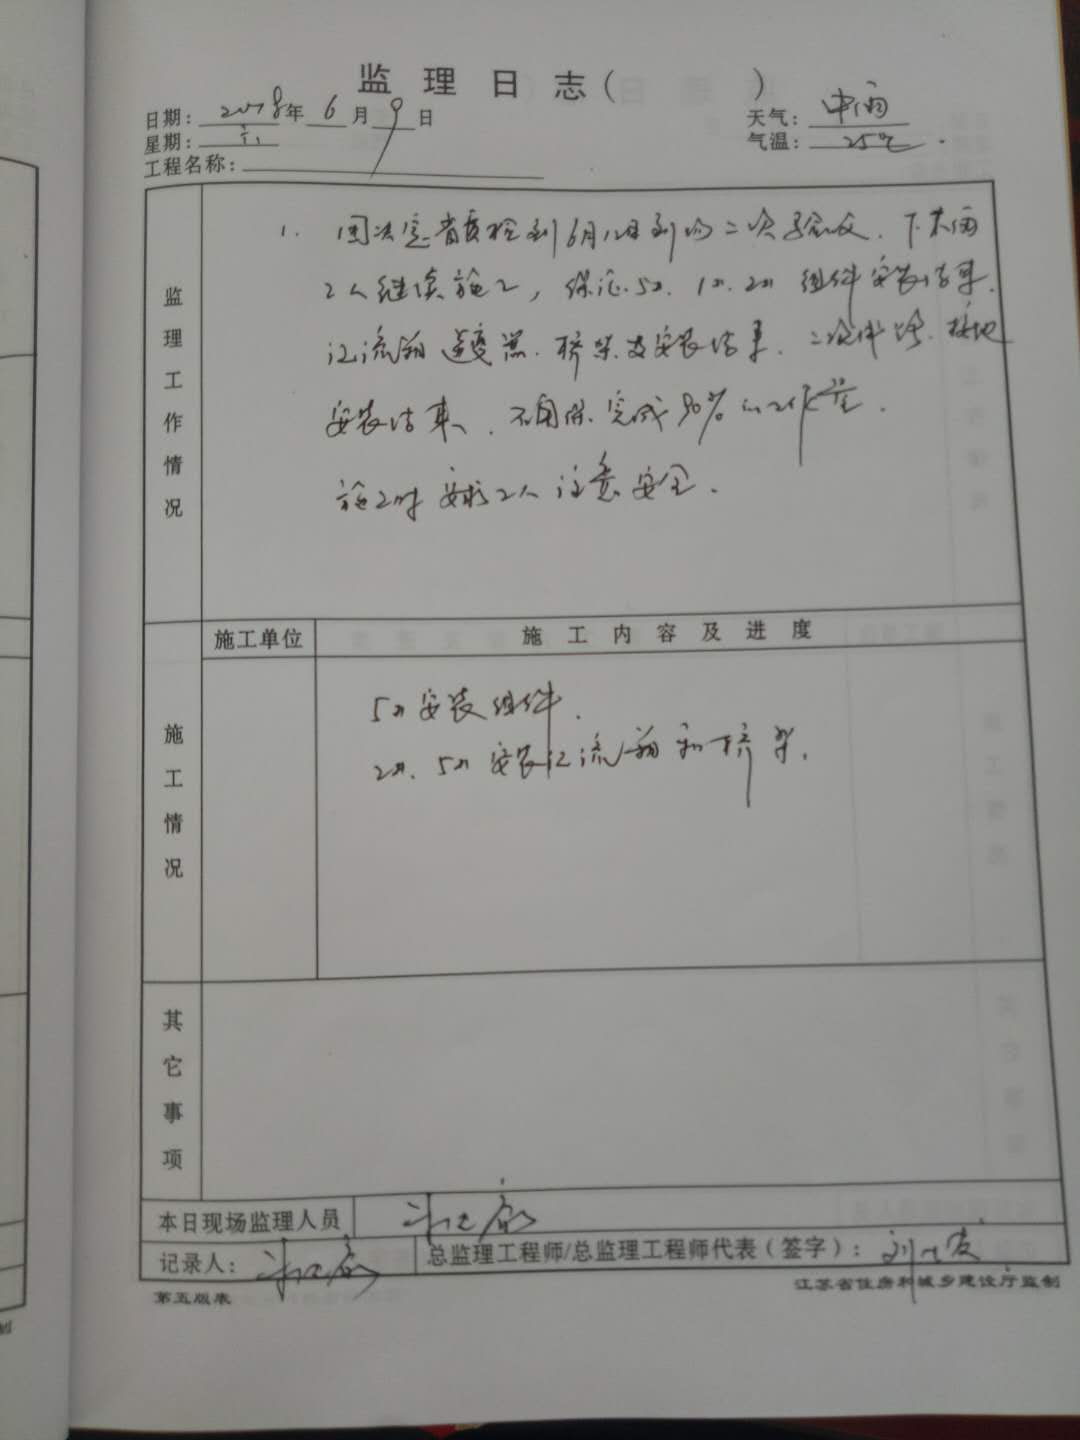 监理日志( )
日期: 2018年 6月 9日
天气: 中雨
星期: 六
气温: 25℃
工程名称:
监理工作情况
1. 因决定省质检到6月12日到场二次验收. 下大雨
工人继续施工, 保证5#. 1#. 2# 组件安装结束.
汇流箱 逆变器. 桥架安装结束. 接地
安装结束、 完成90%的工作量.
施工时 要求工人注意安全.
施工情况
施工单位
施工内容及进度
5#安装组件.
2#. 5#安装汇流箱和桥架.
其它事项
本日现场监理人员
记录人:
总监理工程师/总监理工程师代表(签字):
第五版表
江苏省住房和城乡建设厅监制